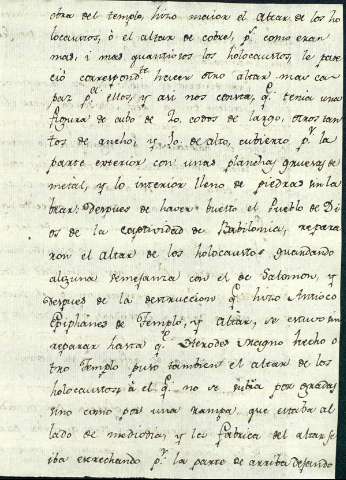 obra del templo, hizo maior el altar de los ho
locaustos, ò el altar de cobre, pr. como eran
mas, i mas quantiosos los holocaustos, le pare
ció correspondte. hacer otro altar mas ca
paz pa. ellos, y asi nos consta, qe. tenia una
figura de cubo de 20. codos de largo, otros tan
tos de ancho, y 10. de alto, cubierto pr. la
parte exterior con unas planchas gruesas de
metal, y lo interior lleno de piedras sin la
brar. Despues de haver buelto el Pueblo de Di
os de la captividad de Babilonica, repara
ron el altar de los holocaustos guardando
alguna semejanza con el de Salomon, y
despues de la destruccion qe. hizo Antioco
Epiphànes de Templo, y Altàr, se estuvo sin
reparar hasta qe. Herodes Magno hecho o
tro Templo puso tambien el altar de los
holocaustos, à el qe. no se subia por gradas
sino como por una rampa, que estaba al
lado de mediodia, y la fabrica del altar se
iba estrechando pr. la parte de arriba dejando